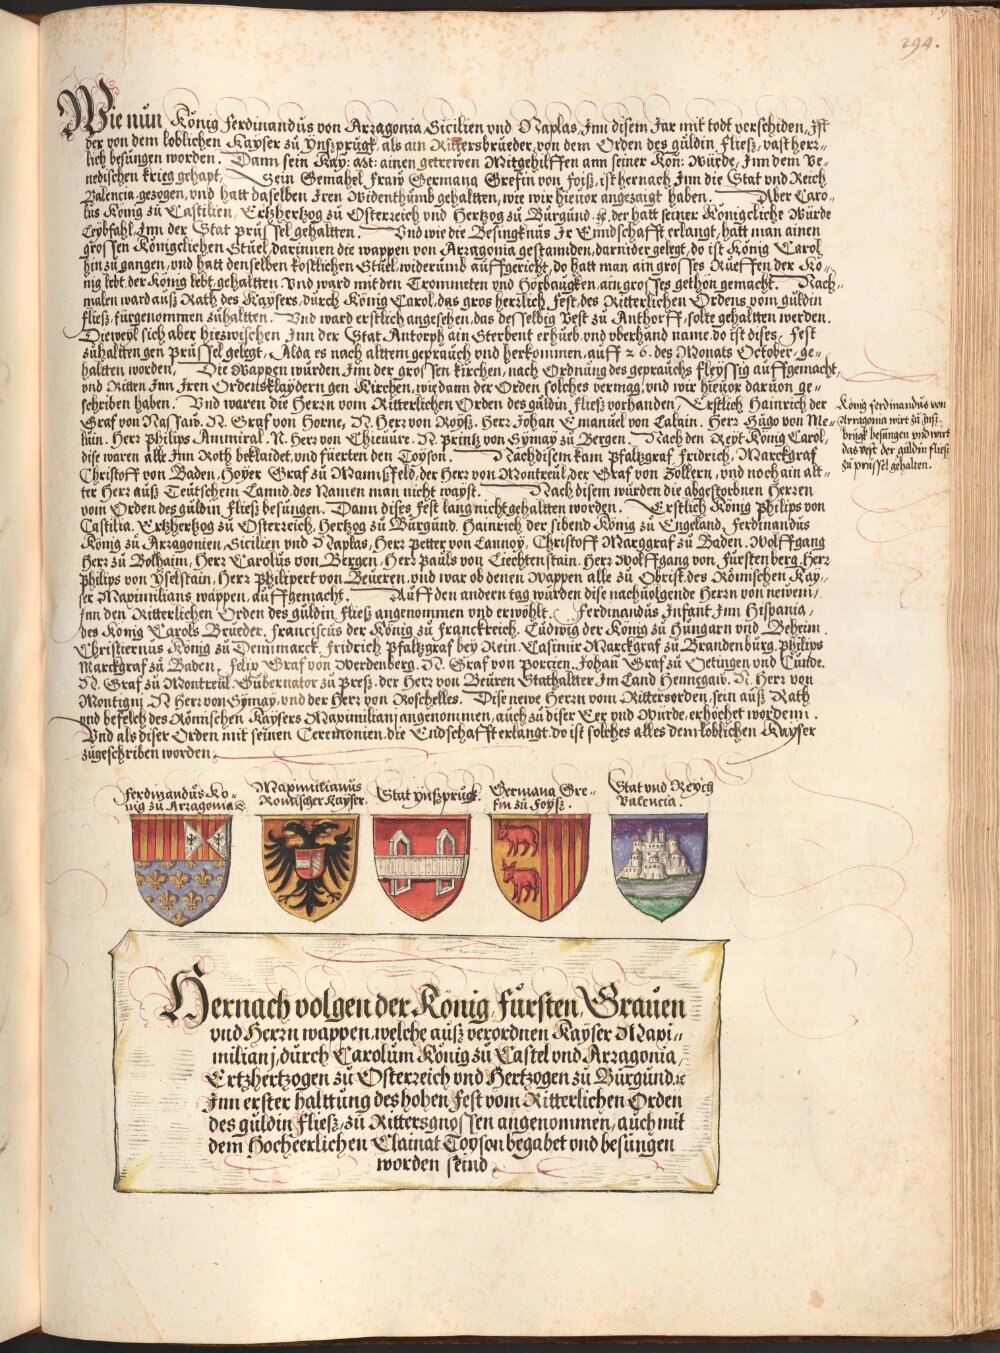 294.
Wie nun König Ferdinandus von Arragonia Sicilien vnd Naplas Jnn disem Jar mit todt verschiden, Jst
der von dem loblichen Kayser zu Ynßprugk, als ain Rittersbrueder, von dem Orden des guldin Fließ, vast herz=
lich besungen worden. Dann sein Kay: Mt: ainen getrewen Mitgehilffen ann seiner Kön: Würde, Jnn dem Ve=
nedischen krieg gehapt, Sein Gemahel Fraw Germana Grefin von Foiß, ist hernach Jnn die Stat vnd Reich
Valencia gezogen, vnd hatt daselben Jren Widenthumb gehaltten, wie wir hieuor angezaigt haben. Aber Caro=
lus König zu Castilien, Ertzhertzog zu Österreich vnd Hertzog zu Burgund. ꝛc. der hatt seiner Königcliche Würde
Leybfahl Jnn der Stat Prüssel gehaltten. Vnd wie die Besingknus Jr Enndschafft erlangt, hatt man ainen
grossen Königclichen Stuel, darinnen die wappen von Arragonia gestannden, darnider gelegt, do ist König Carol
hinzu gangen, vnd hatt denselben kostlichen Stuel, widerumb auffgericht, do hatt man ain grosses Rueffen der Kö=
nig lebt, der König lebt, gehaltten. Vnd ward mit den Trommeten vnd Hörbaugken, ain grosses gethön gemacht. Nach=
malen ward auß Rath des Kaysers, durch König Carol, das gros herrlich Fest, des Ritterlichen Ordens vom guldin
Fließ, fürgenommen zuhaltten. Vnd ward erstlich angesehen, das desselbig Vest zu Anthorff, solte gehaltten werden.
Dieweyl sich aber hiezwischen Jnn der Stat Antorph ain Sterbent erhueb, vnd vberhand name, do ist dises Fest
zuhaltten gen Prüssel gelegt, Alda es nach alttem geprauch vnd herkommen, auff 26. des Monats October, ge=
haltten worden, Die Wappen wurden Jnn der grossen kirchen, nach Ordnung des geprauchs fleyssig auffgemacht,
vnd Ritten Jnn Jren Ordensklaydern gen Kirchen, wie dann der Orden solches vermag, vnd wir hieuor daruon ge=
schriben haben. Vnd waren die Herrn vom Ritterlichen Orden des guldin Fließ vorhanden, Erstlich Hainrich der
Graf von Nassaw. N. Graf von Horne, N. Herr von Royß. Herr Johan Emanuel von Lalain. Herr Hugo von Me=
luin. Herr Philips Ammiral. N. Herr von Chieuure. N. Prinß von Gymay zu Bergen. Nach den Reyt König Carol,
dise waren alle Jnn Roth beklaidet, vnd fuerten den Toyson. Nachdisem kam Pfaltzgraf Fridrich, Marckgraf
Christoff von Baden, Hoyer Graf zu Mannßfeld, der Herr von Montreul, der Graf von Zollern, vnd noch ain alt=
ter Herr auß Teutschem Lannd, des Namen man nicht wayst. Nach disem wurden die abgestorbnen Herren
vom Orden des guldin Fließ besungen. Dann dises Fest lang nicht gehaltten worden. Erstlich König Philips von
Castilia, Ertzhertzog zu Österreich, Hertzog zu Burgund, Hainrich der sibend König zu Engeland, Ferdinandus
König zu Arragonien, Sicilien vnd Naplas, Herr Petter von Lannoy, Christoff Marggraf zu Baden, Wolffgang
Herr zu Bolhaim, Herr Carolus von Bergen, Herr Pauls von Liechtenstain. Herr Wolffgang von Fürstenberg, Herr
Philips von Yselstain, Herr Philipert von Beueren, vnd war ob denen Wappen alle zu Obrist, des Römischen Kay=
ser Maximilians wappen, auffgemacht. Auff den andern tag wurden dise nachuolgende Herrn von newem,
Jnn den Ritterlichen Orden des guldin Fließ angenommen vnd erwöhlt. Ferdinandus Jnfant Jnn Hispania,
des König Carols Brueder, Franciscus der König zu Franckreich. Ludwig der König zu Hungarn vnd Beheim.
Christiernus König zu Dennmarck. Fridrich Pfaltzgraf bey Rein. Casimir Marckgraf zu Brandenburg, Philips
Marckgraf zu Baden, Felix Graf von Werdenberg. N. Graf von Porcien, Johan Graf zu Oetingen, vnd Cuinde.
N. Graf zu Montreul. Gubernator zu Preß. der Herr von Beüren Stathaltter Jm Land Hennegaw. N. Herr von
Montigni N Herr von Gymay, vnd der Herr von Roschelles. Dise newe Herrn vom Rittersorden, sein auß Rath
vnd befelch des Römischen Kaysers Maximiliani angenommen, auch zu diser Eer vnd Würde, erhöchet wordenn.
Vnd als diser Orden mit seinen Ceremonien, die Endschafft erlangt, do ist solches alles dem loblichen Kayser
zugeschriben worden.
König Ferdinandus von
Arragonia wirt zu Jnß=
brugk besungen vnd wirt
das vest der guldin fließ
zu prüssel gehalten.
Ferdinandus Kö=
nig zu Arragonia
Maximilianus
Römischer Kayser
Stat ynßprugk
Germana Gre=
fin zu Foyß.
Stat vnd Reych
Valencia.
Hernach volgen der König, Fürsten, Grauen
vnd Herrn wappen, welche auß verordnen Kayser Maxi=
miliani, durch Carolum König zu Castel vnd Arragonia,
Ertzhertzogen zu Österreich vnd Hertzogen zu Burgund. ꝛc
Jnn erster halttung des hohen Fest vom Ritterlichen Orden
des guldin Fließ, zu Rittersgnossen angenommen, auch mit
dem Hocheerlichen Clainat Toyson begabet vnd besungen
worden seind.